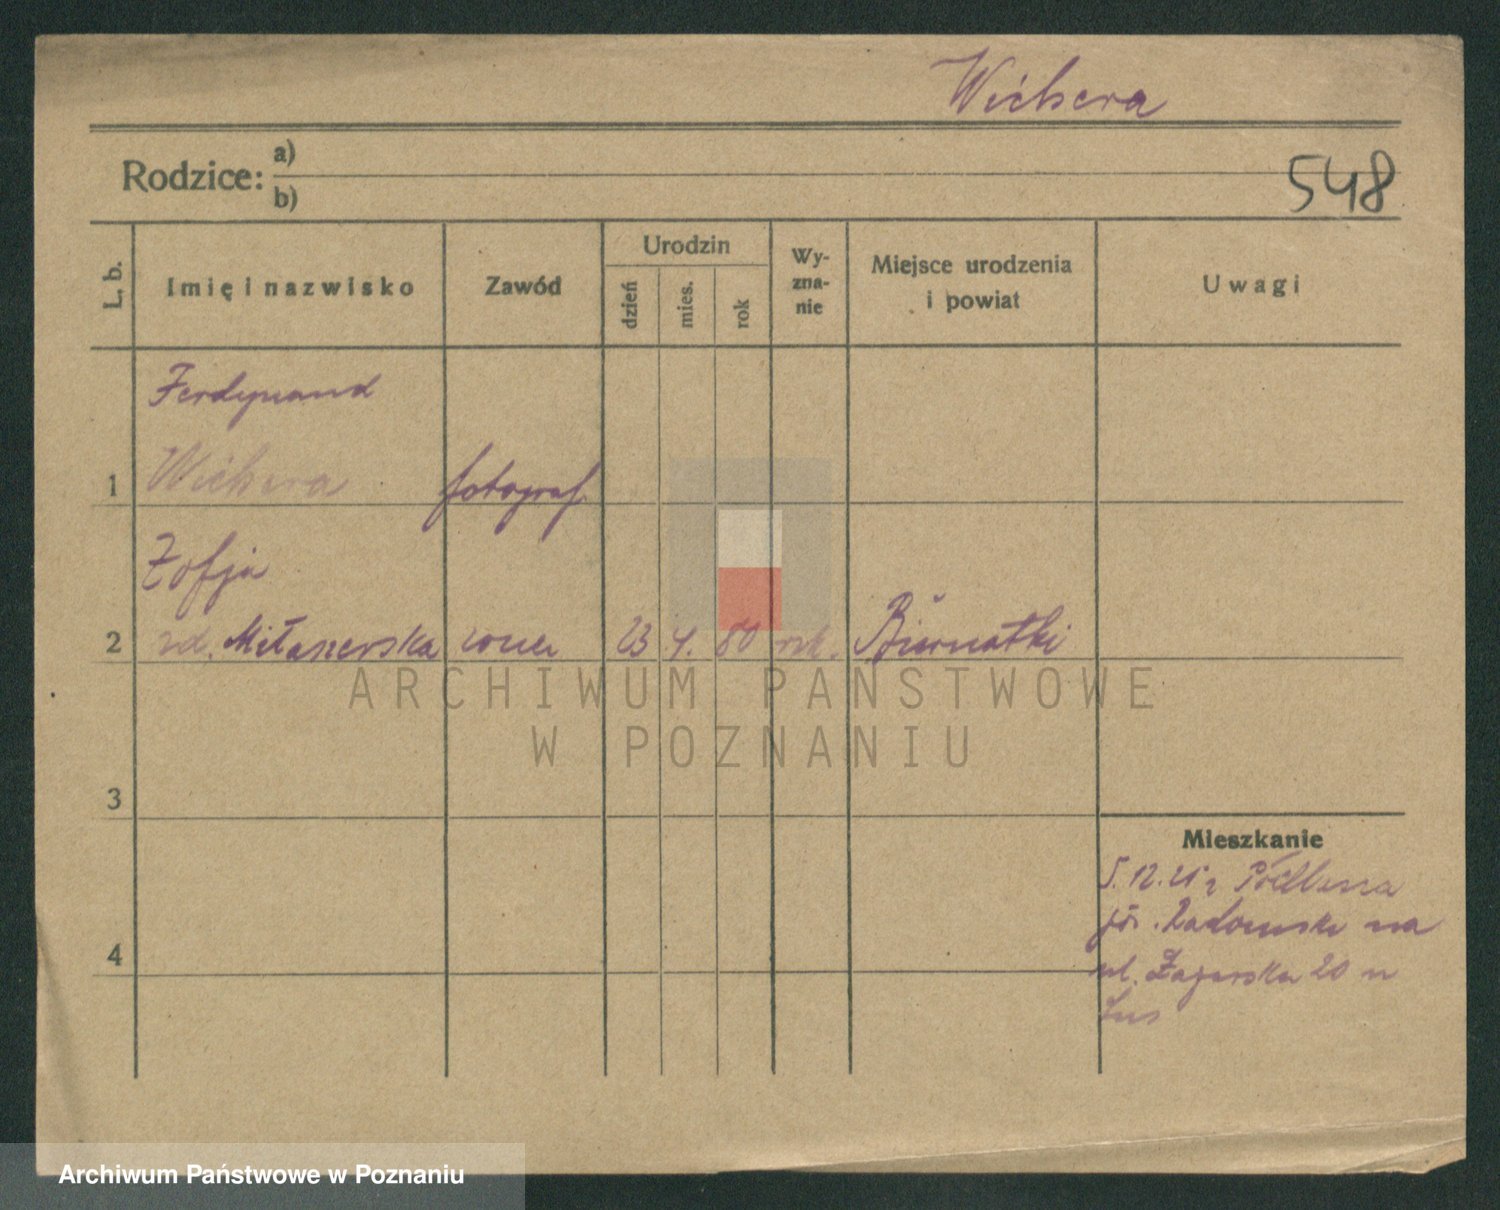 Wichera
Rodzice: a)
b)
548
L. b.
Imię i nazwisko
Zawód
Urodzin
dzień
mies.
rok
Wy-
zna-
nie
Miejsce urodzenia
i powiat
Uwagi
Ferdynand
1 Wichera fotograf
Zofja
2 zd. Miłaszewska żona 23 4. 80 rzk. Biernatki
ARCHIWUM PAŃSTWOWE
W POZNANIU
3
Mieszkanie
5.12.21 z
na
4
ul. Zagórska 20 u
Archiwum Państwowe w Poznaniu